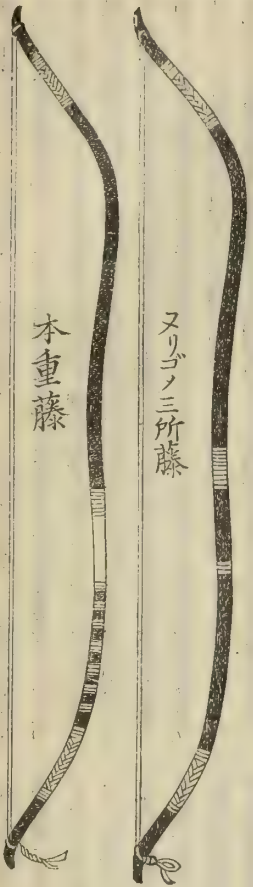 ヌリゴノ三所藤
本重藤